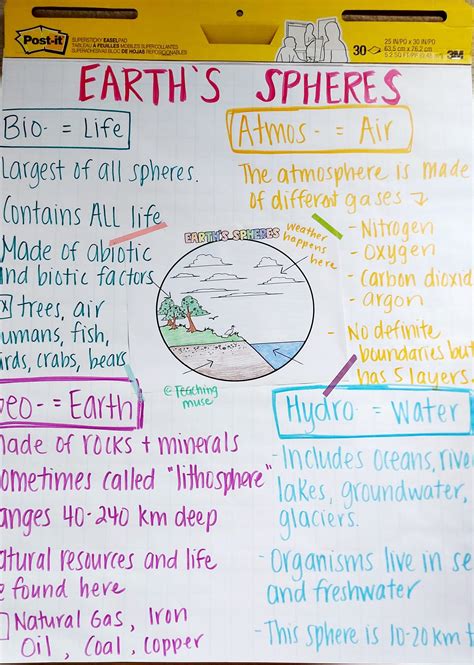 Post-it
SUPERSTICKY EASEL PAD
TABLEAU À FEUILLES MOBILES SUPERCOLLANTES
SUPERADHESIVAS BLOC DE HOJAS REPOSICIONABLES
30
25 IN/PO x 30 IN/PO
63.5 cm x 76.2 cm
3M
EARTH'S SPHERES
Bio- = Life
Largest of all spheres.
Contains ALL life
Made of abiotic
and biotic factors
trees, air
umans, fish,
irds, crabs, bears
Atmos- = Air
The atmosphere is made
of different gases
- Nitrogen
- Oxygen
- Carbon dioxid
- argon
- No definite
boundaries but
has 5 layers.
EARTH'S SPHERES
Weather
happens
here
@Teaching
muse
Geo- = Earth
made of rocks + minerals
ometimes called "lithosphere"
anges 40-240 km deep
atural resources and life
e found here
Natural Gas, Iron
Oil, Coal, Copper
Hydro- = Water
- Includes oceans, rive
lakes, groundwater,
glaciers.
- Organisms live in se
and freshwater
- This sphere is 10-20 km t